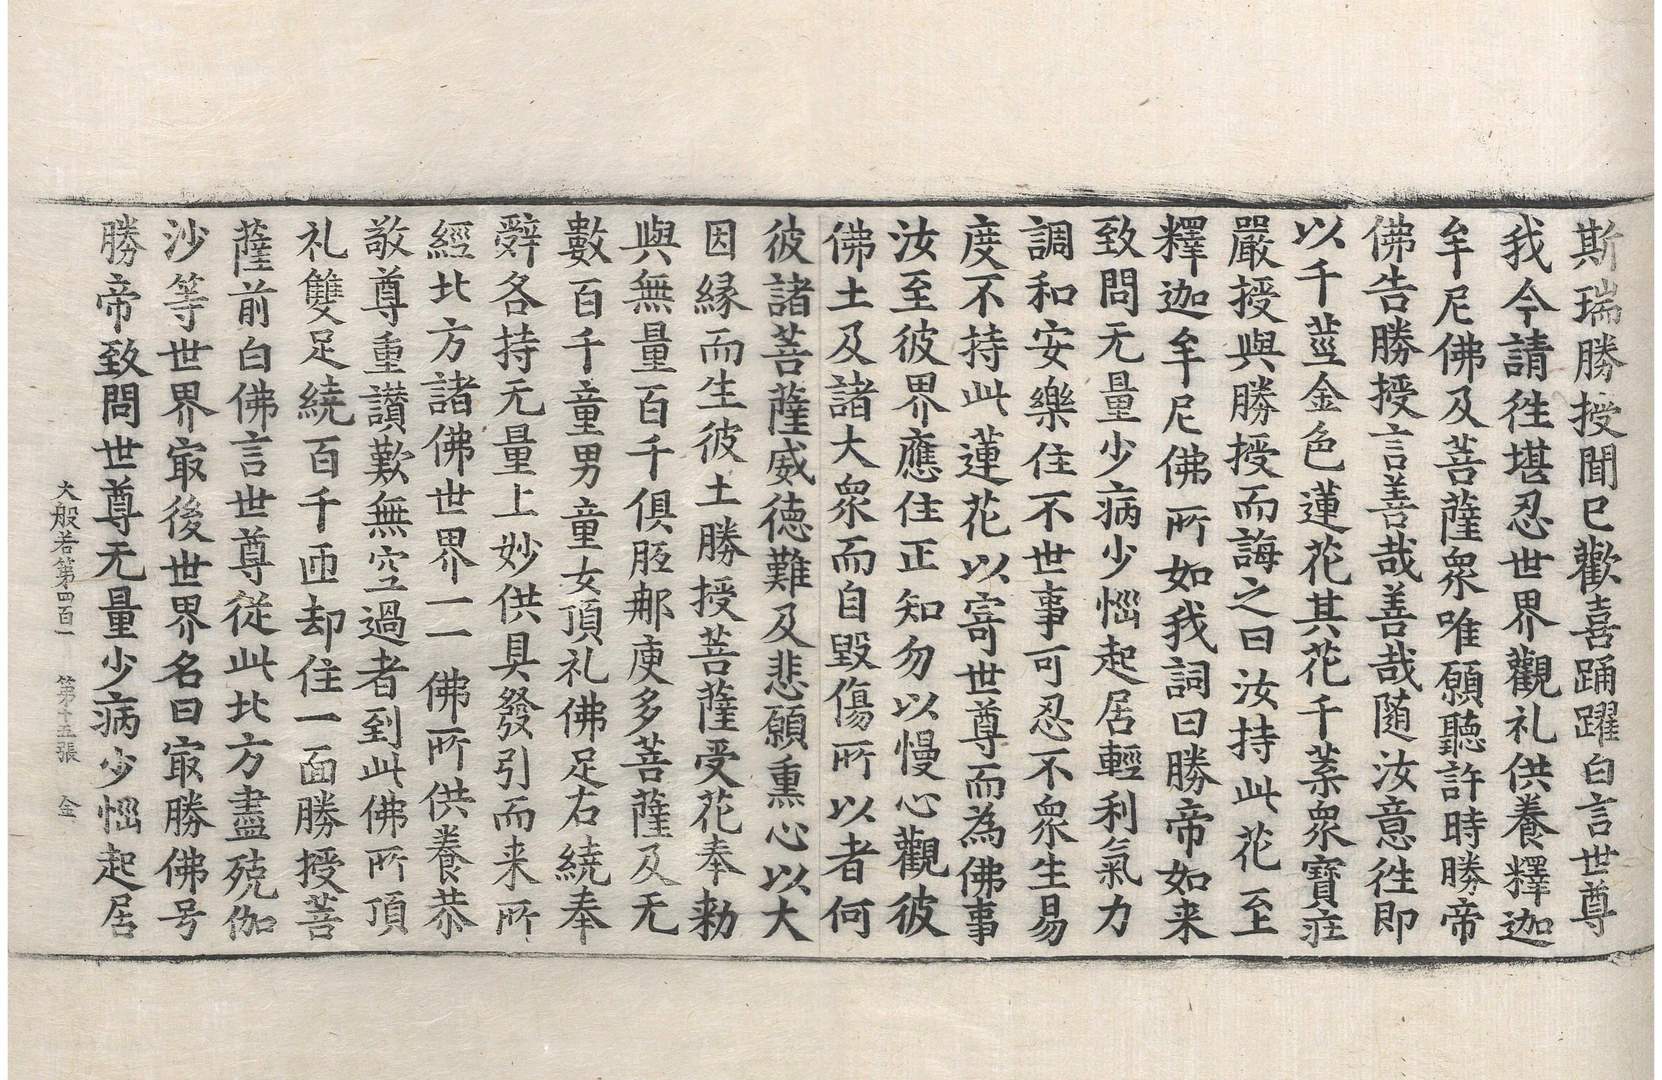 斯瑞勝授聞已歡喜踊躍白言世尊
我今請徃堪忍世界觀礼供養釋迦
牟尼佛及菩薩衆唯願聽許時勝帝
佛告勝授言善哉善哉随汝意徃即
以千莖金色蓮花其花千葉衆寶莊
嚴授與勝授而誨之曰汝持此花至
釋迦牟尼佛所如我詞曰勝帝如来
致問无量少病少惱起居輕利氣力
調和安樂住不世事可忍不衆生易
度不持此蓮花以寄世尊而為佛事
汝至彼界應住正知勿以慢心觀彼
佛土及諸大衆而自毀傷所以者何
彼諸菩薩威德難及悲願熏心以大
因緣而生彼土勝授菩薩受花奉勅
與無量百千俱胝那庾多菩薩及无
數百千童男童女頂礼佛足右繞奉
辝各持无量上妙供具發引而来所
經北方諸佛世界一一佛所供養恭
敬尊重讃歎無空過者到此佛所頂
礼雙足繞百千匝却住一面勝授菩
薩前白佛言世尊従此北方盡殑伽
沙等世界㝡後世界名曰㝡勝佛号
勝帝致問世尊无量少病少惱起居
大般若第四百一　第十五張　金